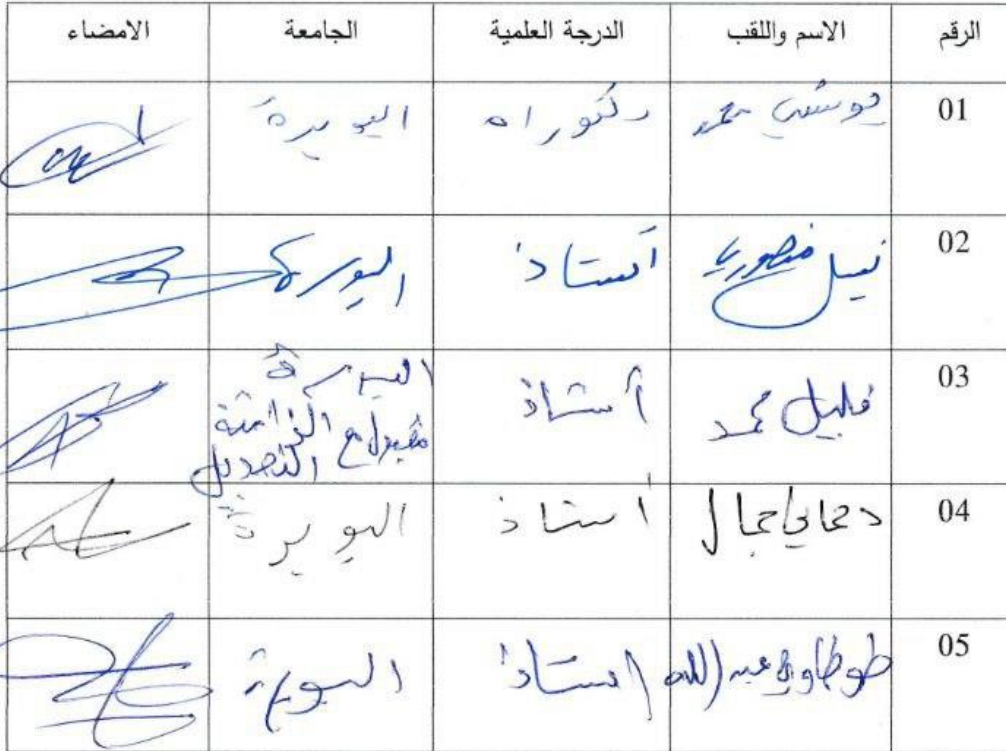 الرقم الاسم واللقب الدرجة العلمية الجامعة الامضاء
01 يوسفي محمد دكتوراه البويرة
02 نبيل منصوري أستاذ البويرة
03 قليل محمد أستاذ البويرة
مقبول مع
التعديل
04 دحماني جمال استاذ البويرة
05 طوطاوي عبد الله استاذ البويرة